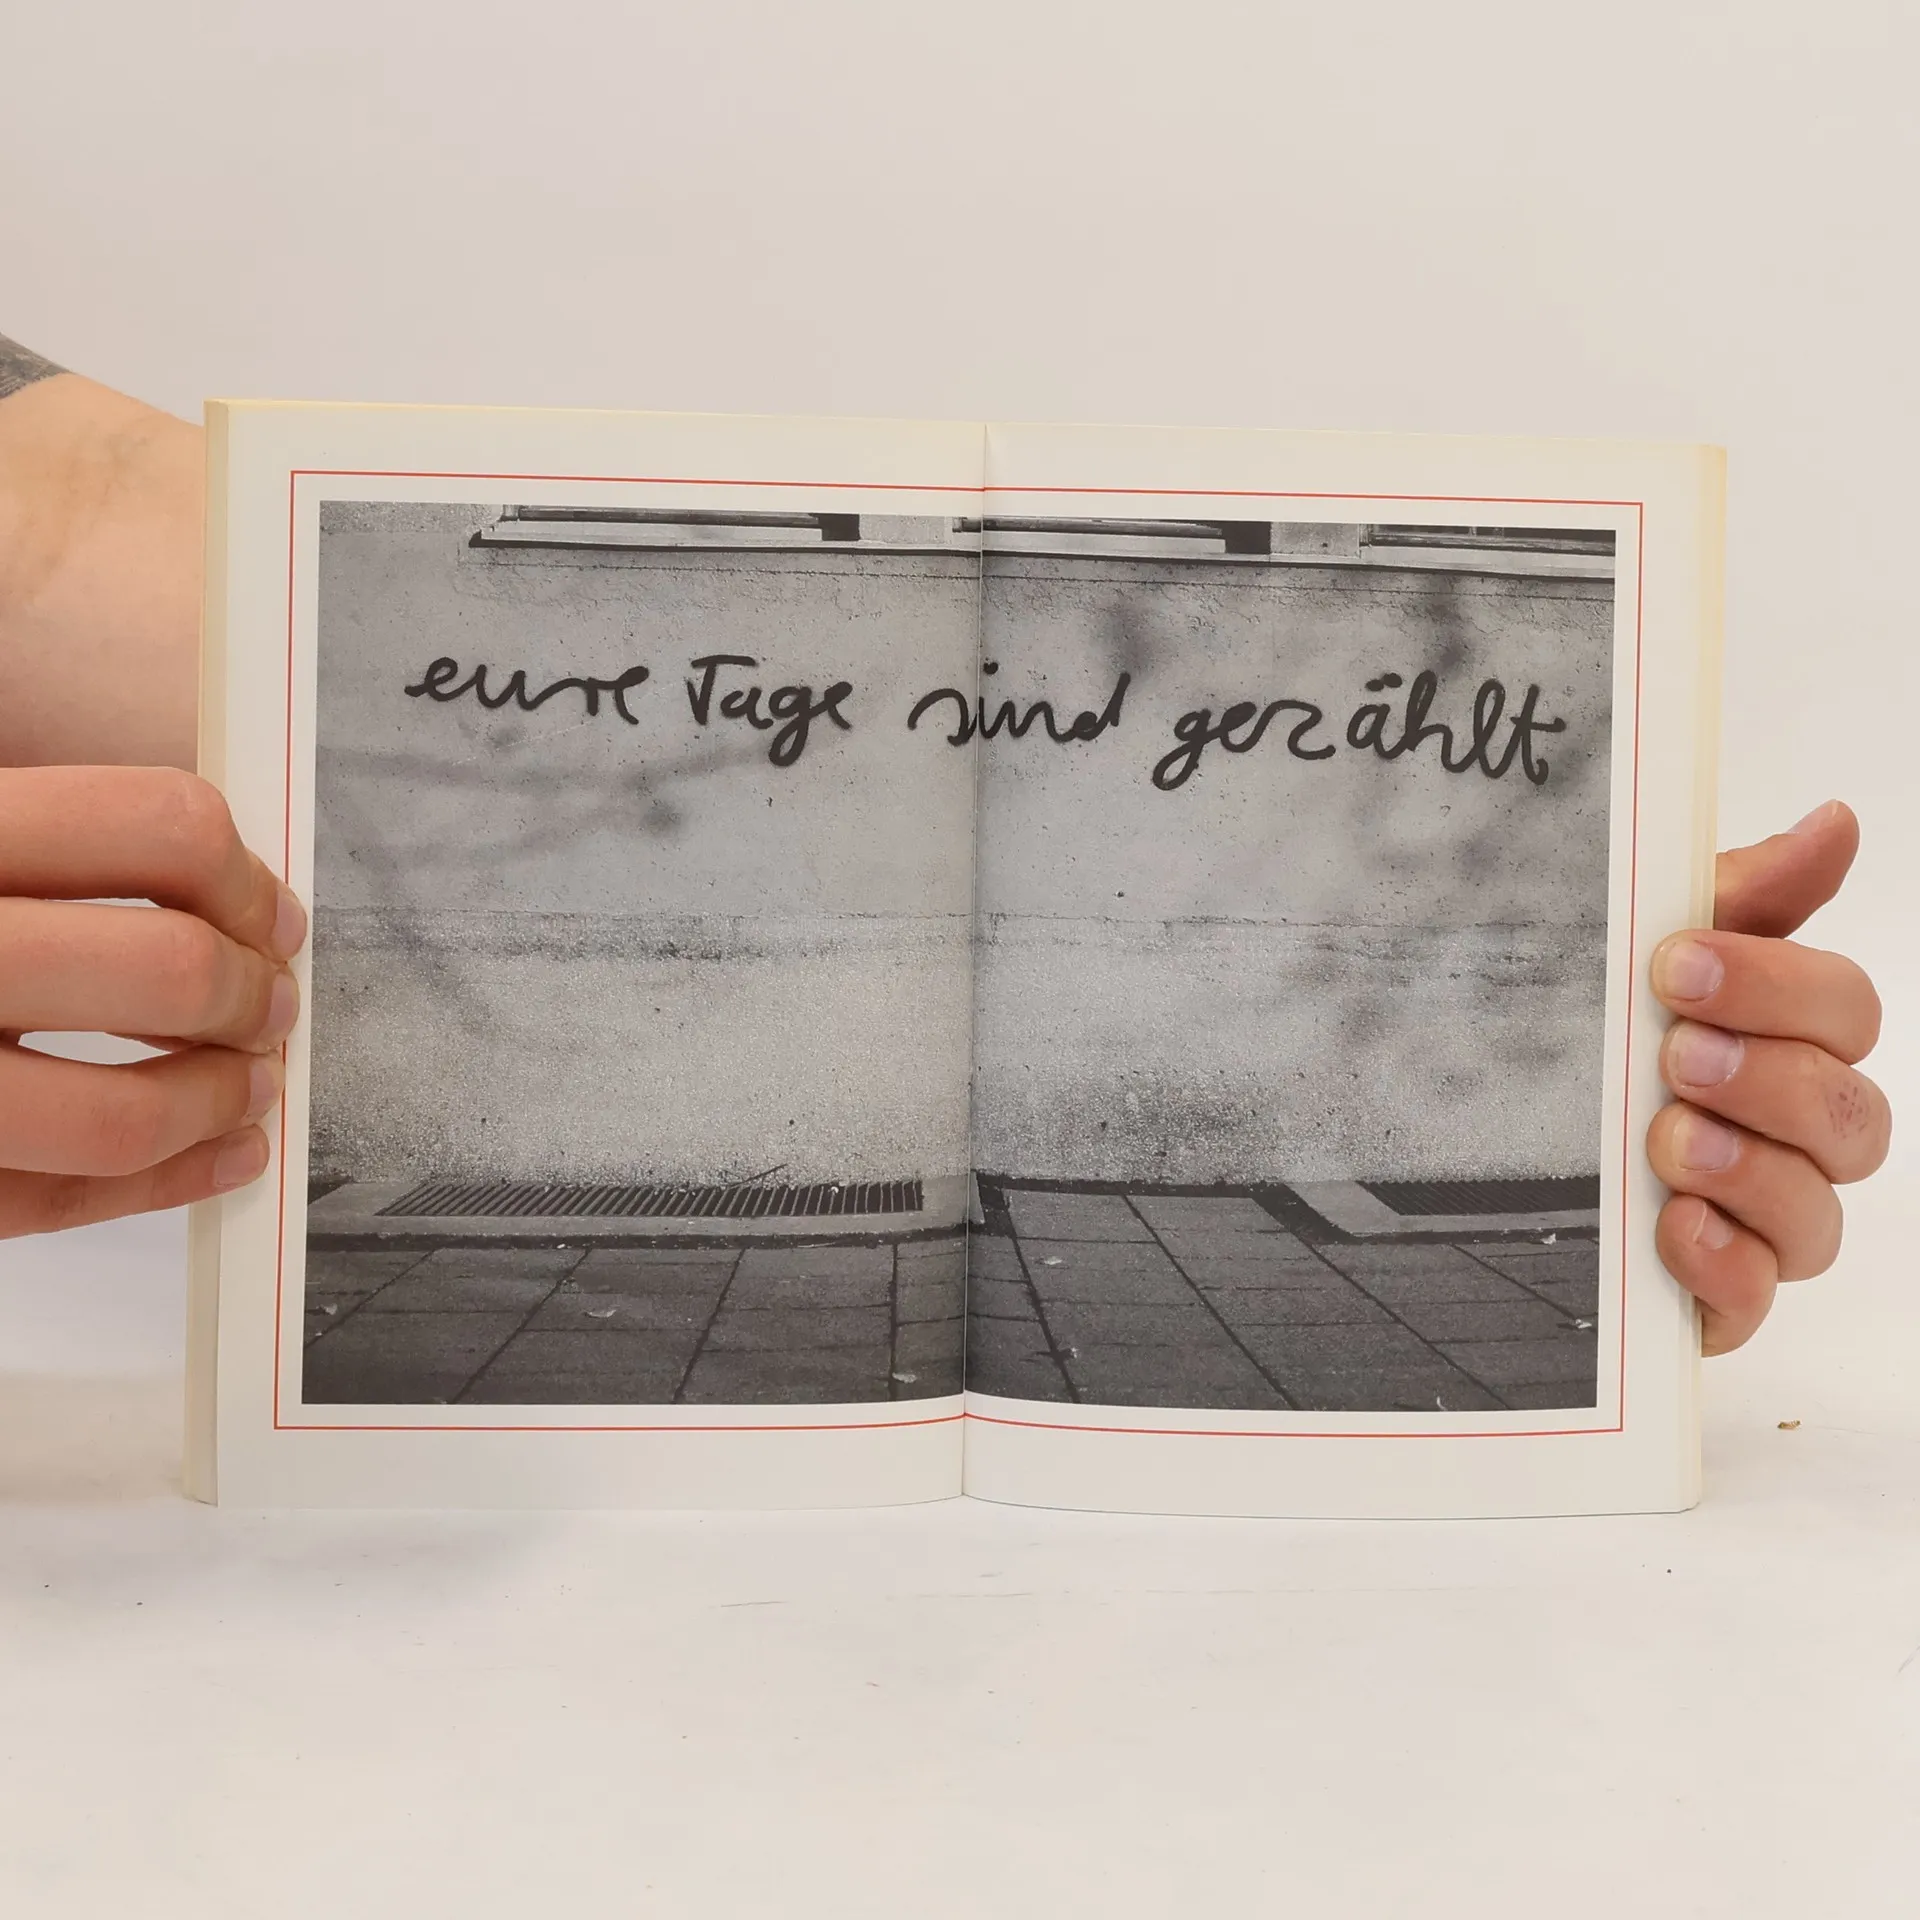 eure Tage sind gezählt